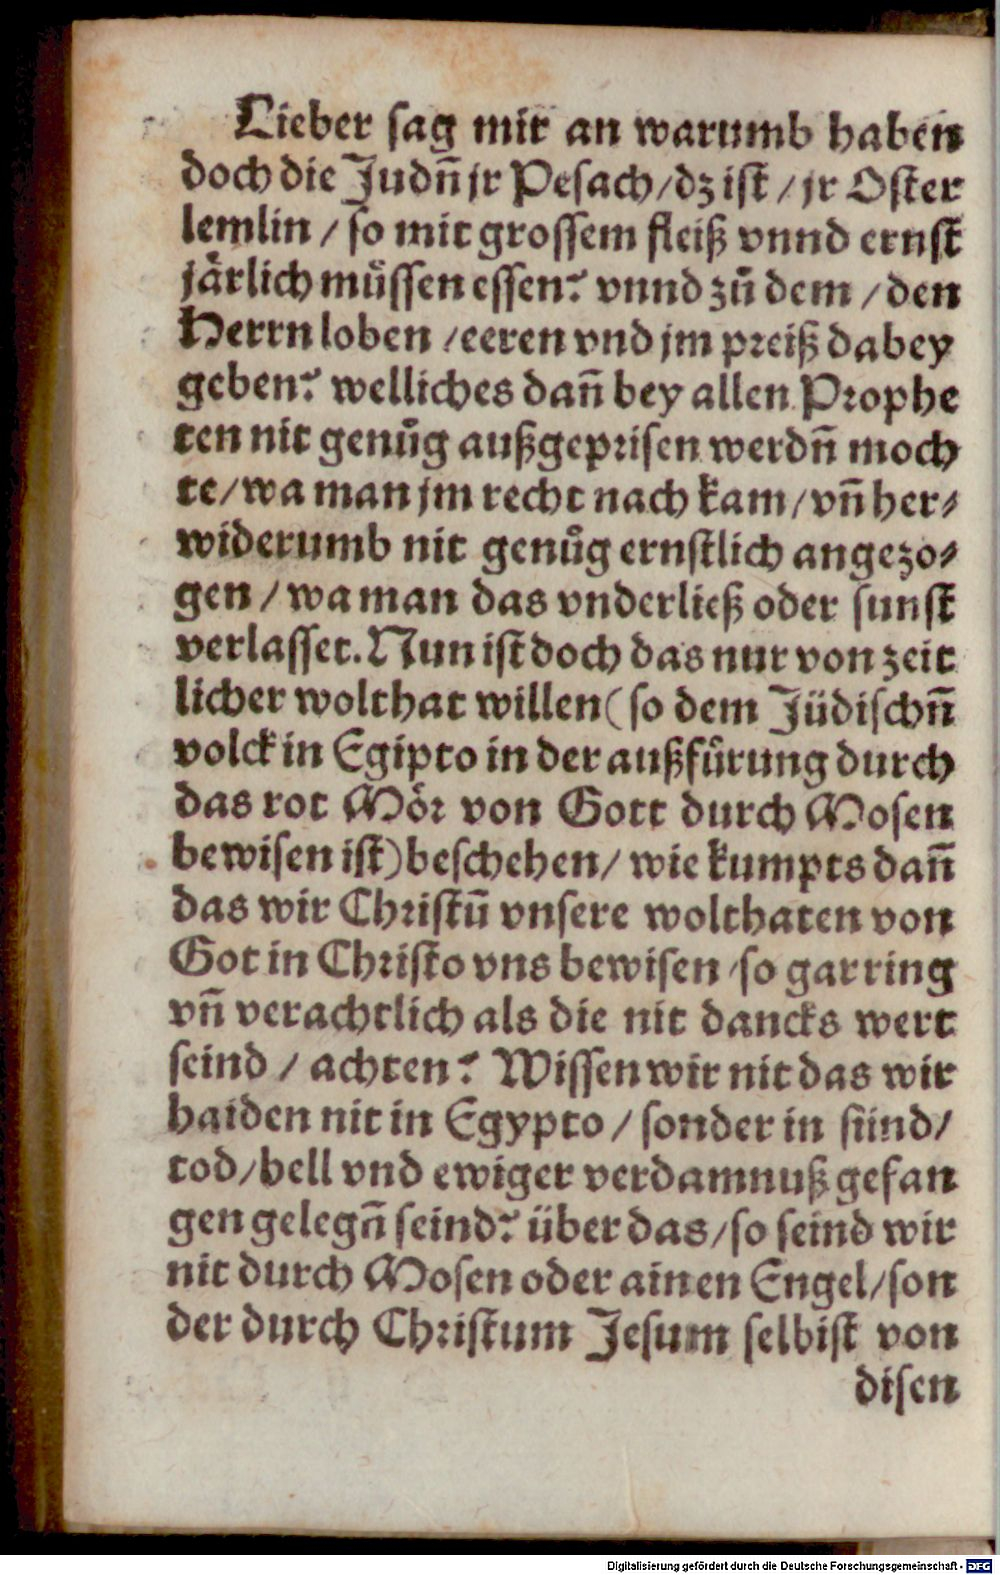 Lieber sag mir an warumb haben
doch die Judn̄ jr Pesach/dz ist/jr Oster
lemlin/so mit grossem fleiß vnnd ernst
jaͤrlich muͤssen essen? vnnd zuͦ dem/den
Herrn loben/eeren vnd jm preiß dabey
geben? welliches dañ bey allen Prophe
ten nit genuͦg außgeprisen werdn̄ moch
te/wa man jm recht nach kam/vñ her⸗
widerumb nit genuͦg ernstlich angezo⸗
gen/wa man das vnderließ oder sunst
verlasset. Nun ist doch das nur von zeit
licher wolthat willen (so dem Jüdischn̄
volck in Egipto in der außfuͤrung durch
das rot Moͤr von Gott durch Mosen
bewisen ist) beschehen/wie kumpts dañ
das wir Christū vnsere wolthaten von
Got in Christo vns bewisen/so gar ring
vñ verachtlich als die nit dancks wert
seind/achten? Wissen wir nit das wir
haiden nit in Egypto/sonder in sünd/
tod/hell vnd ewiger verdamnuß gefan
gen gelegn̄ seind? über das/so seind wir
nit durch Mosen oder ainen Engel/son
der durch Christum Jesum selbist von
disen
Digitalisierung gefördert durch die Deutsche Forschungsgemeinschaft - DFG